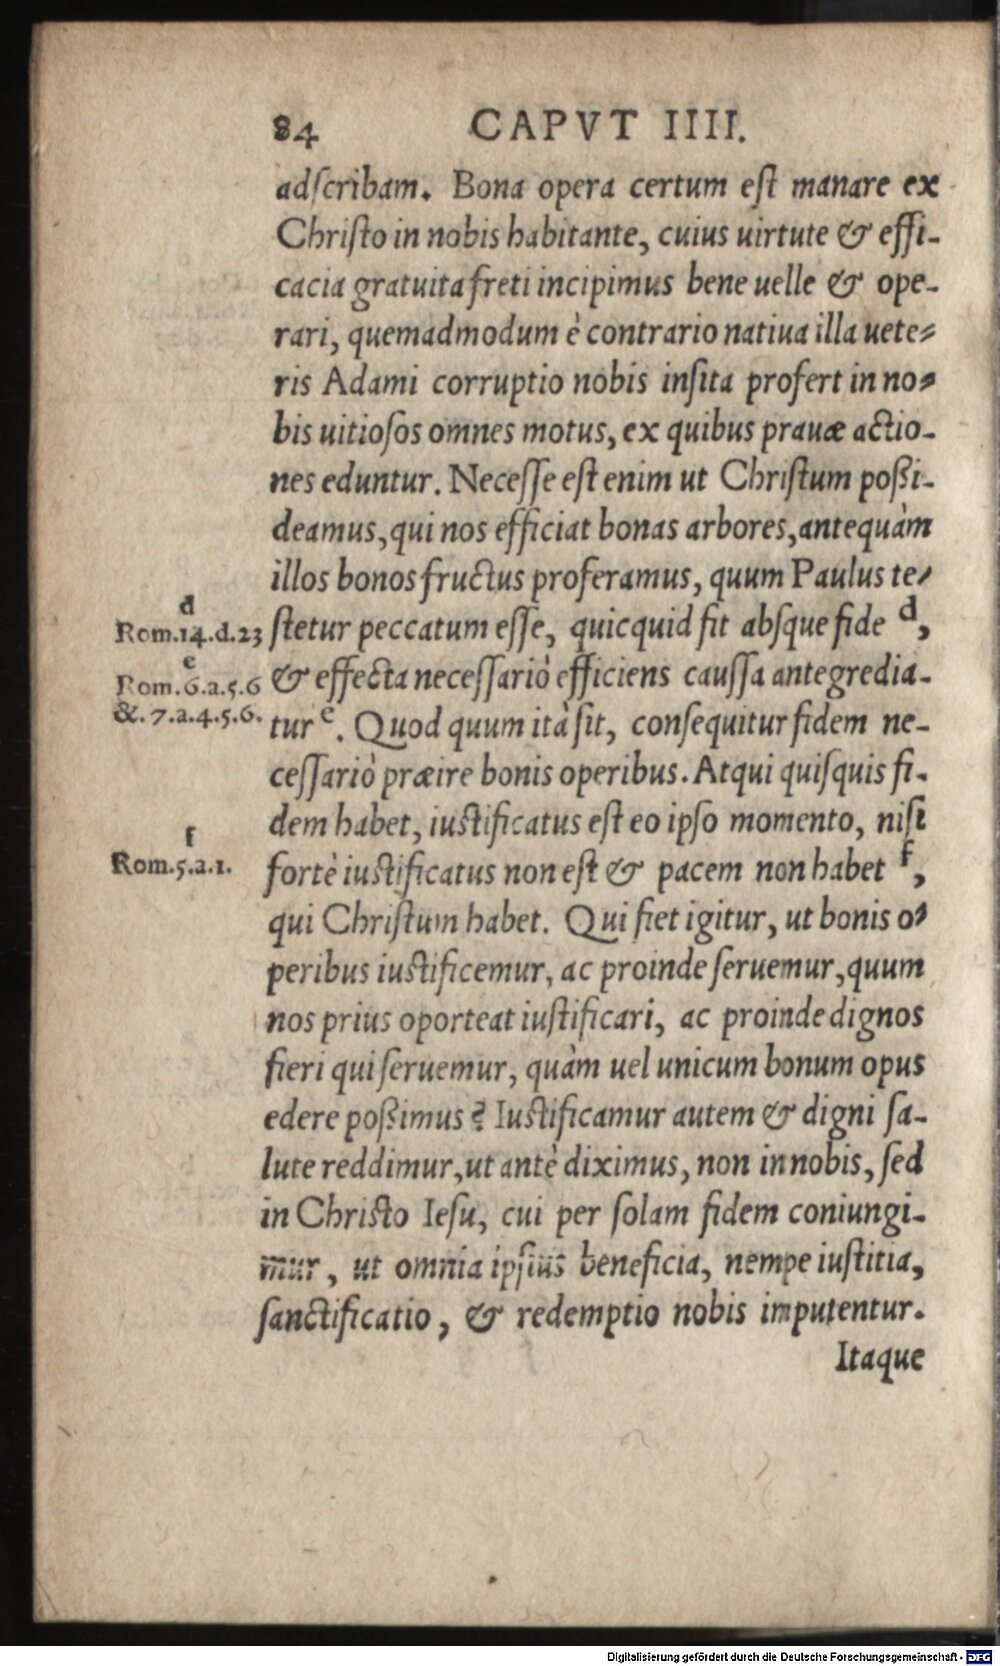 84 CAPVT IIII.
adſcribam. Bona opera certum eſt manare ex
Chriſto in nobis habitante, cuius uirtute & effi-
cacia gratuita freti incipimus bene uelle & ope-
rari, quemadmodum è contrario natiua illa uete-
ris Adami corruptio nobis inſita profert in no-
bis uitioſos omnes motus, ex quibus prauæ actio-
nes eduntur. Neceſſe eſt enim ut Chriſtum poßi-
deamus, qui nos efficiat bonas arbores, antequàm
illos bonos fructus proferamus, quum Paulus te-
d
Rom.14.d.23
ſtetur peccatum eſſe, quicquid fit abſque fide d,
e
Rom.6.a.5.6
&. 7.a.4.5.6.
& effecta neceſſariò efficiens cauſſa antegredia-
tur e. Quod quum ità ſit, conſequitur fidem ne-
ceſſariò præire bonis operibus. Atqui quiſquis fi-
dem habet, iuſtificatus eſt eo ipſo momento, niſi
f
Rom.5.a.1.
fortè iuſtificatus non eſt & pacem non habet f,
qui Chriſtum habet. Qui fiet igitur, ut bonis o-
peribus iuſtificemur, ac proinde ſeruemur, quum
nos prius oporteat iuſtificari, ac proinde dignos
fieri qui ſeruemur, quàm uel unicum bonum opus
edere poßimus? Iuſtificamur autem & digni ſa-
lute reddimur, ut antè diximus, non in nobis, ſed
in Chriſto Ieſu, cui per ſolam fidem coniungi-
mur, ut omnia ipſius beneficia, nempe iuſtitia,
ſanctificatio, & redemptio nobis imputentur.
Itaque
Digitalisierung gefördert durch die Deutsche Forschungsgemeinschaft - DFG